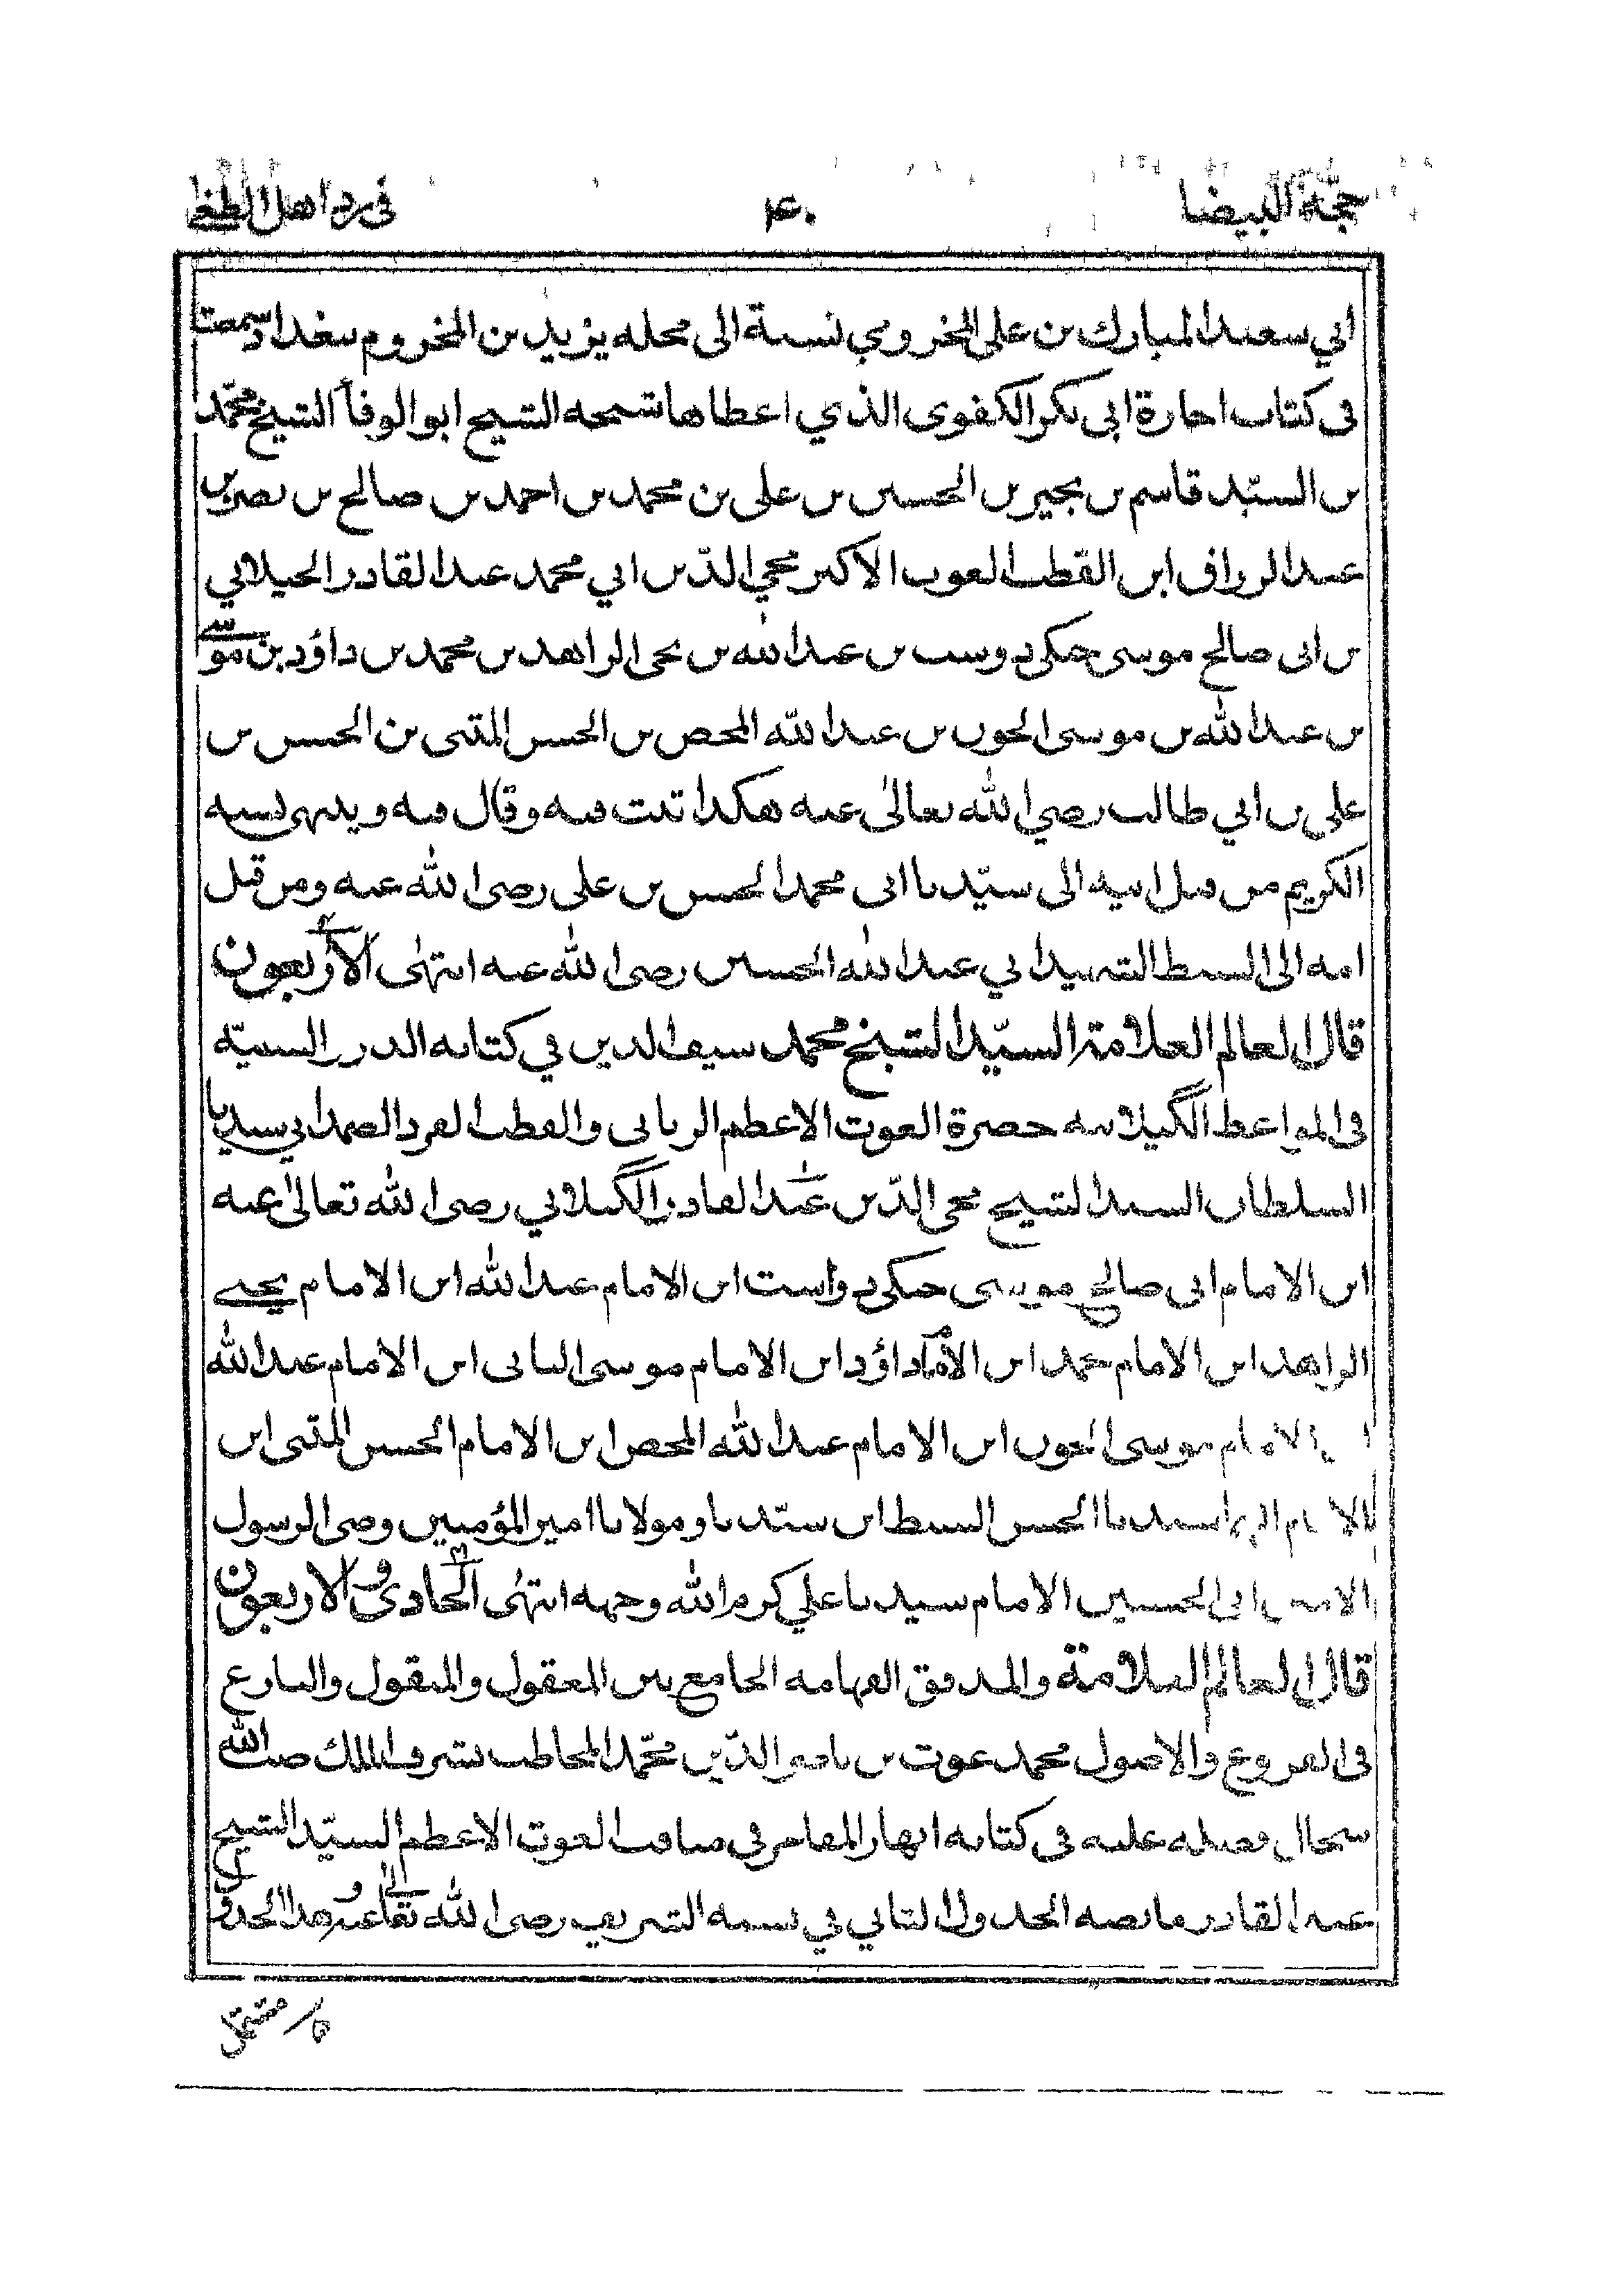 حجّة البيضا ۴۰ فى رد اهل الطغى
ابي سعيد المبارك بن على المخرومي نسبة الى محله يزيد بن المخروم ببغداد سمعت
فى كتاب اجازة ابى بكر الكفوى الذي اعطاها شيخه الشيخ ابو الوفا الشيخ محمّد
بن السيّد قاسم بن يحيى بن الحسين بن على بن محمد بن احمد بن صالح بن نصر بن
عبد الرزاق ابن القطب الغوث الاكبر محي الدّين ابي محمد عبد القادر الجيلاني
بن ابى صالح موسى جنكى دوست بن عبد الله بن يحى الزاهد بن محمد بن داؤد بن موسى
بن عبد الله بن موسى الجون بن عبد الله المحض بن الحسن المثنى بن الحسن بن
على بن ابي طالب رضي الله تعالىٰ عنه هكذا ثبت فيه وقال فيه وينتهى نسبه
الكريم من قبل ابيه الى سيّدنا ابى محمد الحسن بن على رضى الله عنه ومن قبل
امه الى السبط الشهيد ابي عبد الله الحسين رضى الله عنه انتهٰى الاربعون
قال العالم العلامة السيّد الشيخ محمد سيف الدين في كتابه الدرر السنيّه
فى المواعظ الگيلانيه حضرة الغوث الاعظم الربانى والقطب الفرد الصمدابي سيدنا
السلطان السيد الشيخ محى الدّين عبد القادر الگيلاني رضى الله تعالىٰ عنه
ابن الامام ابى صالح موسى جنكى دوست ابن الامام عبد الله ابن الامام يحيى
الزاهد ابن الامام محمد ابن الامام داؤد ابن الامام موسى الثانى ابن الامام عبد الله
الامام موسى الجون ابن الامام عبد الله المحض ابن الامام الحسن المثنى ابن
الامام سيدنا الحسن السبط ابن سيّدنا ومولانا امير المؤمنين وصى الرسول
ابى الحسين الامام سيدنا علي كرم الله وجهه انتهٰى الحادى والاربعون
قال العالم العلامة والمدقق الفهامه الجامع بين المعقول والمنقول والبارع
فى الفروع والاصول محمد غوث بن ناصر الدّين محمّد المخاطب بشرف الملك صب الله
سجال فضله عليه فى كتابه انهار المفاخر فى مناقب الغوث الاعظم السيّد الشيخ
عبد القادر ما نصه الجدول الثاني في نسبه الشريف رضى الله تعالى عنه هذا الجدول
مشتمل